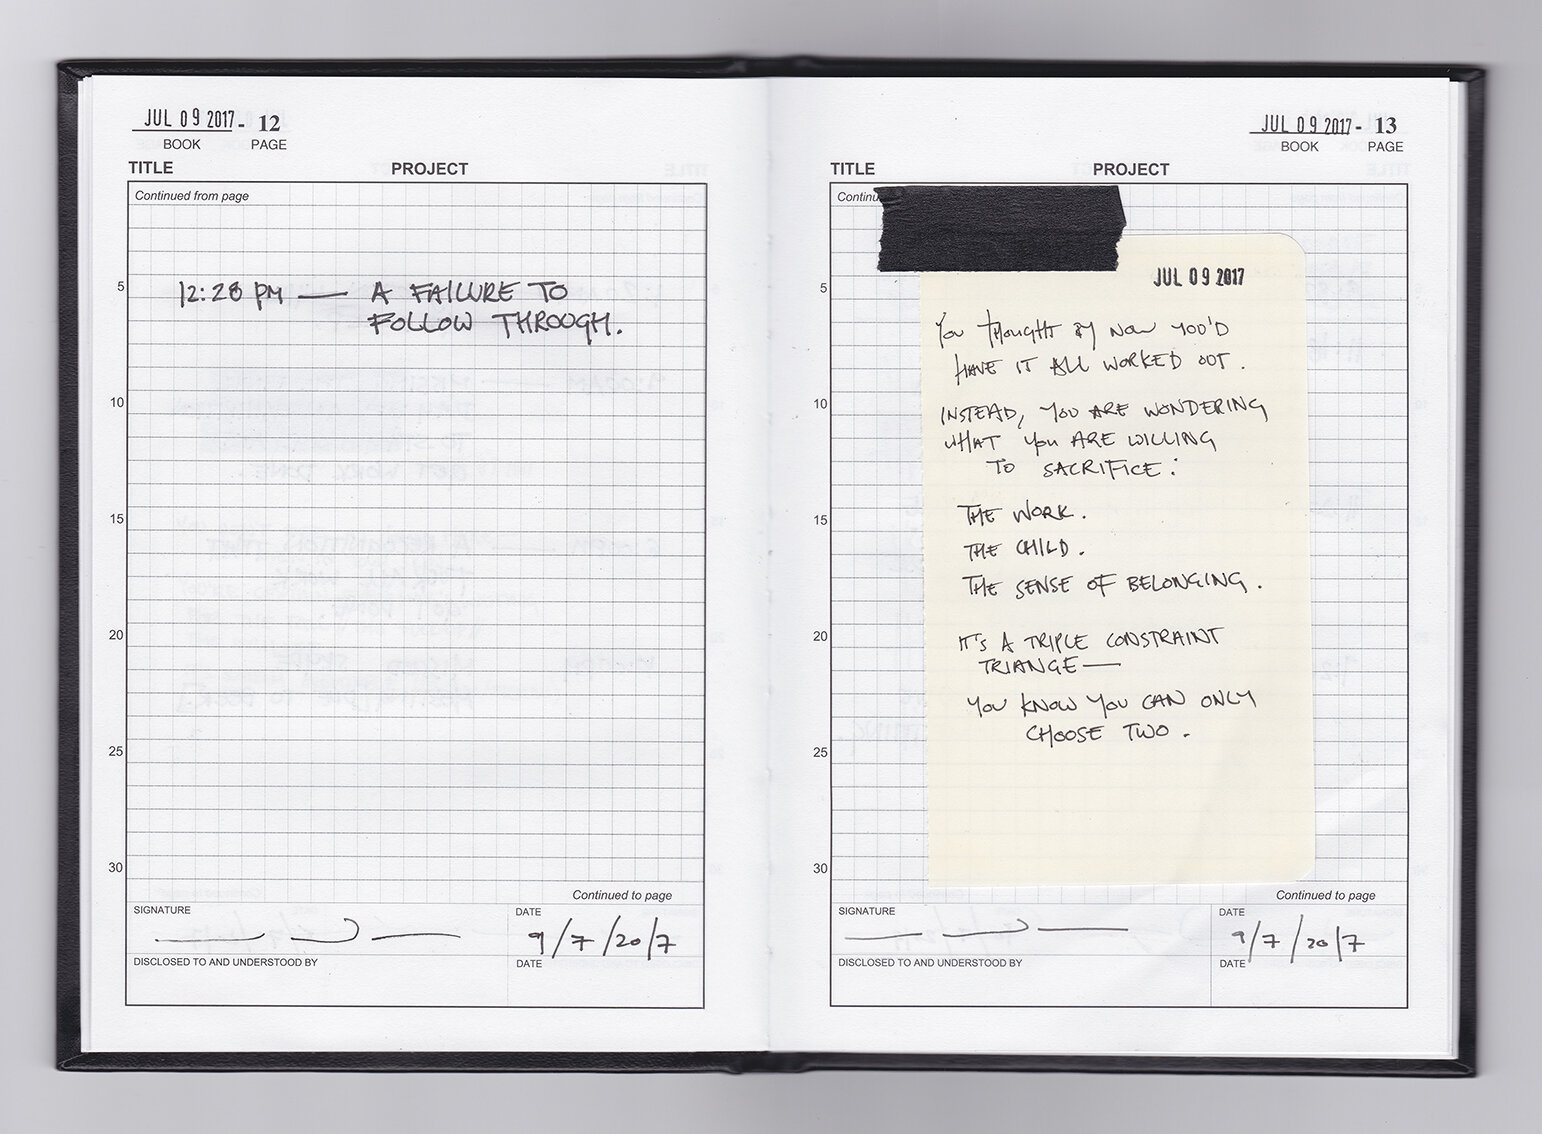 JUL 09 2017 - 12
BOOK PAGE
TITLE PROJECT
Continued from page
5
12:28 PM — A FAILURE TO
FOLLOW THROUGH.
10
15
20
25
30
Continued to page
SIGNATURE DATE
9/7/2017
DISCLOSED TO AND UNDERSTOOD BY DATE
JUL 09 2017 - 13
BOOK PAGE
TITLE PROJECT
Continu
JUL 09 2017
5
YOU THOUGHT BY NOW YOU'D
HAVE IT ALL WORKED OUT.
10
INSTEAD, YOU ARE WONDERING
WHAT YOU ARE WILLING
TO SACRIFICE:
15
THE WORK.
THE CHILD.
THE SENSE OF BELONGING.
20
IT'S A TRIPLE CONSTRAINT
TRIANGE—
YOU KNOW YOU CAN ONLY
CHOOSE TWO.
25
30
Continued to page
SIGNATURE DATE
9/7/2017
DISCLOSED TO AND UNDERSTOOD BY DATE